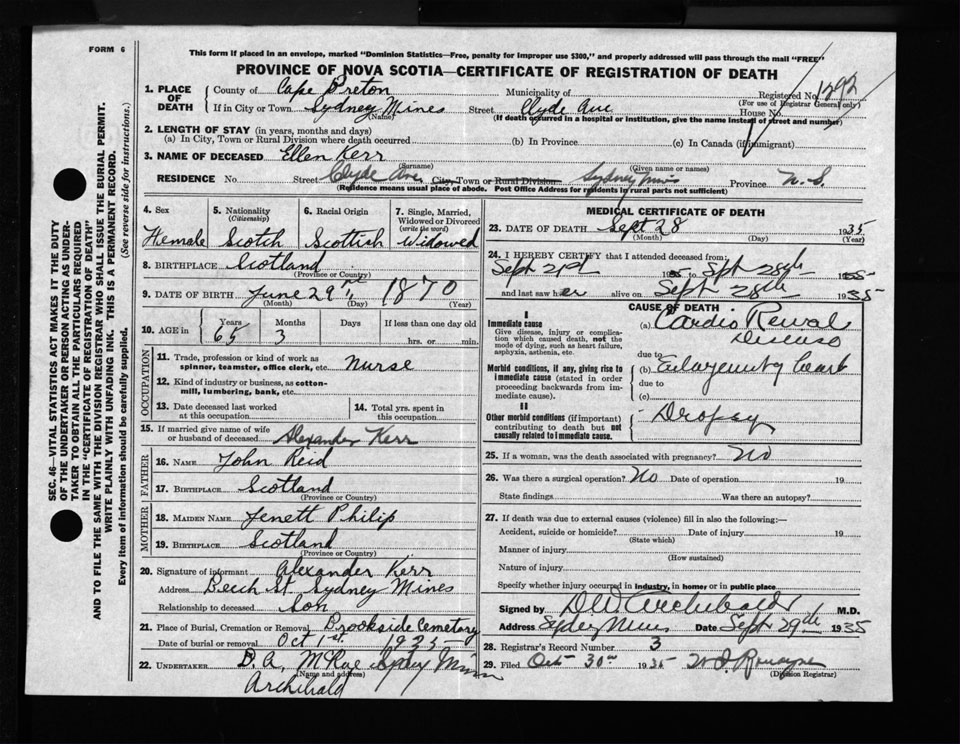 FORM 6
This form if placed in an envelope, marked "Dominion Statistics—Free, penalty for improper use $300," and properly addressed will pass through the mail "FREE"
PROVINCE OF NOVA SCOTIA—CERTIFICATE OF REGISTRATION OF DEATH
1. PLACE OF DEATH
County of Cape Breton Municipality of Registered No. 1292
(For use of Registrar General only)
If in City or Town Sydney Mines Street Clyde Ave House No.
(Name) (If death occurred in a hospital or institution, give the name instead of street and number)
2. LENGTH OF STAY (in years, months and days)
(a) In City, Town or Rural Division where death occurred (b) In Province (c) In Canada (if immigrant)
3. NAME OF DECEASED Ellen Kerr
(Surname) (Given name or names)
RESIDENCE No. Street Clyde Ave City, Town or Rural Division Sydney Mines Province N. S.
(Residence means usual place of abode. Post Office Address for residents in rural parts not sufficient)
4. Sex 5. Nationality 6. Racial Origin 7. Single, Married,
(Citizenship) Widowed or Divorced
(write the word)
Female Scotch Scottish Widowed
8. BIRTHPLACE Scotland
(Province or Country)
9. DATE OF BIRTH June 29 1870
(Month) (Day) (Year)
10. AGE in Years Months Days If less than one day old
65 3 hrs. or min.
OCCUPATION
11. Trade, profession or kind of work as spinner, teamster, office clerk, etc. Nurse
12. Kind of industry or business, as cotton-mill, lumbering, bank, etc.
13. Date deceased last worked at this occupation
14. Total yrs. spent in this occupation
15. If married give name of wife or husband of deceased Alexander Kerr
FATHER
16. NAME John Reid
17. BIRTHPLACE Scotland
(Province or Country)
MOTHER
18. MAIDEN NAME Jenett Philip
19. BIRTHPLACE Scotland
(Province or Country)
20. Signature of informant Alexander Kerr
Address Beech St. Sydney Mines
Relationship to deceased Son
21. Place of Burial, Cremation or Removal Brookside Cemetary
Date of burial or removal Oct 1st. 1935
22. UNDERTAKER B. A. McRae Sydney Mines
(Name and address)
Archibald
MEDICAL CERTIFICATE OF DEATH
23. DATE OF DEATH Sept 28 1935
(Month) (Day) (Year)
24. I HEREBY CERTIFY that I attended deceased from:
Sept 21st 1935 to Sept 28th 1935
and last saw her alive on Sept 28th 1935
CAUSE OF DEATH
I
Immediate cause
Give disease, injury or complication which caused death, not the mode of dying, such as heart failure, asphyxia, asthenia, etc.
(a) Cardio Renal Disease
due to
Morbid conditions, if any, giving rise to immediate cause (stated in order proceeding backwards from immediate cause).
(b) heart
due to
(c)
II
Other morbid conditions (if important) contributing to death but not causally related to immediate cause.
Dropsy
25. If a woman, was the death associated with pregnancy? No
26. Was there a surgical operation? No Date of operation 19
State findings Was there an autopsy?
27. If death was due to external causes (violence) fill in also the following:—
Accident, suicide or homicide? Date of injury 19
(State which)
Manner of injury
(How sustained)
Nature of injury
Specify whether injury occurred in industry, in home, or in public place
Signed by D W Archibald M.D.
Address Sydney Mines Date Sept 29th 1935
28. Registrar's Record Number 3
29. Filed Oct 30th 1935
(Division Registrar)
SEC. 46—VITAL STATISTICS ACT MAKES IT THE DUTY
OF THE UNDERTAKER OR PERSON ACTING AS UNDER-
TAKER TO OBTAIN ALL THE PARTICULARS REQUIRED
IN THE "CERTIFICATE OF REGISTRATION OF DEATH"
AND TO FILE THE SAME WITH THE DIVISION REGISTRAR WHO SHALL ISSUE THE BURIAL PERMIT.
WRITE PLAINLY WITH UNFADING INK. THIS IS A PERMANENT RECORD.
Every item of information should be carefully supplied. (See reverse side for instructions.)